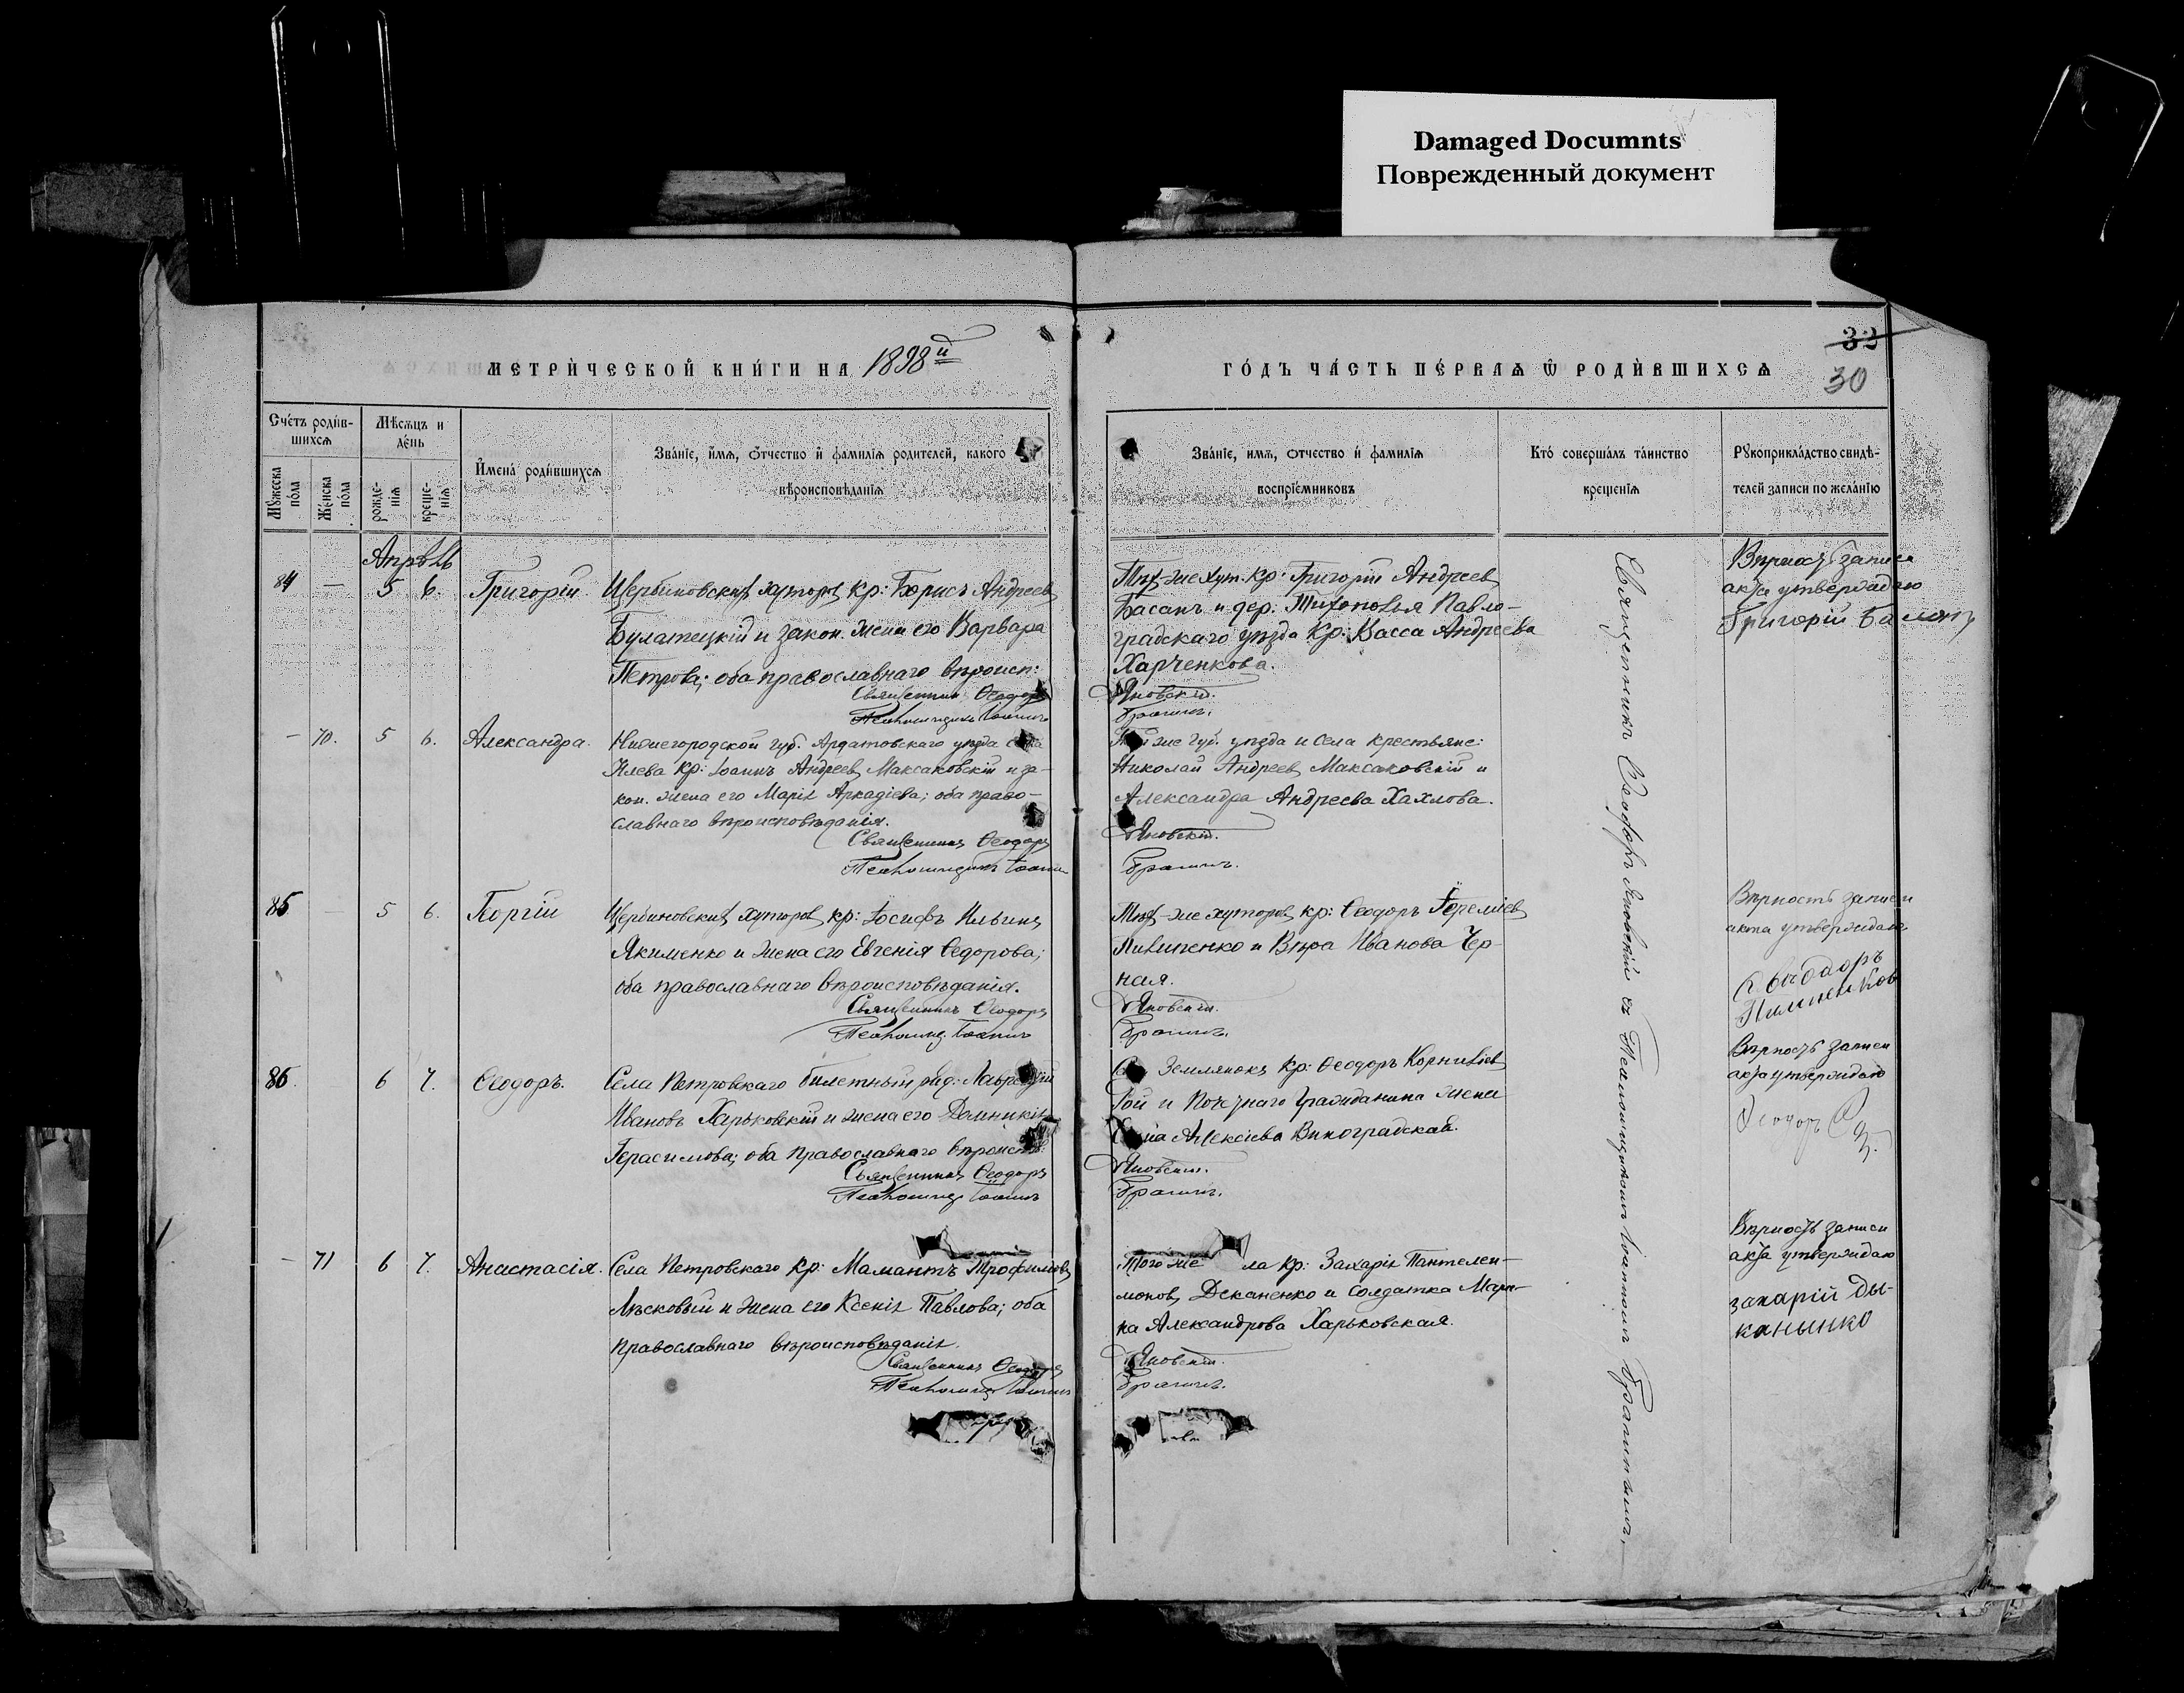 Damaged Documnts
Поврежденный документ
МЕТРИ́ЧЕСКОЙ КНИ́ГИ НА 1898й
ГО́ДЪ ЧА́СТЬ ПЕ́РВАѦ Ѿ РОДИ́ВШИХСѦ
32
30
Сче́тъ роди́в-
шихсѧ
Мѣ́сѧцъ и
де́нь
Мꙋ́жеска
по́ла
Же́нска
по́ла
рожде-
нїѧ
креще-
нїѧ
И҆мена̀ роди́вшихсѧ
Зва́нїе, и҆́мѧ, ѻ҆́тчество и҆ фамилїѧ родителей, какого
вѣроисповѣданїѧ
Зва́нїе, имѧ, ѻтчество и҆ фамилїѧ
воспрїе́мниковъ
Кто́ соверша́лъ та́инство
крещенїѧ
Рꙋкоприкла́дство свидѣ́-
телей записи по жела́нїю
Апрѣль
84 — 5 6. Григорій Щербиновскихъ хуторовъ кр: Борисъ Андреевъ
Булатецкій и закон. жена его Варвара
Петрова; оба православнаго вѣроисп:
Священникъ Ѳеодоръ
Псаломщикъ Іоаннъ
Тѣхъ-же хут. кр: Григорій Андреевъ
Басанъ и дер. Павло-
градскаго уѣзда кр: Васса Андреева
Харченкова.
Яновскій.
Вѣрность записи
акта утверждаю
Григорій
— 70. 5 6. Александра. Нижегородской губ. Ардатовскаго уѣзда села
кр: Іоаннъ Андреевъ Максаковскій и за-
кон. жена его Марія Аркадіева; оба право-
славнаго вѣроисповѣданія.
Священникъ Ѳеодоръ
Псаломщикъ Іоаннъ
же губ. уѣзда и села крестьяне:
Николай Андреевъ Максаковскій и
Александра Андреева Хахлова.
Яновскій.
85 — 5 6. Георгій Щербиновскихъ хуторовъ кр: Іосифъ Ильинъ
Якименко и жена его Евгенія Ѳедорова;
оба православнаго вѣроисповѣданія.
Священникъ Ѳеодоръ
Псаломщ. Іоаннъ
Тѣхъ-же хуторовъ кр: Ѳеодоръ
Пилипенко и Вѣра Иванова Чер-
ная.
Яновскій.
Вѣрность записи
акта утверждаю
86. 6 7. Ѳеодоръ. Села Петровскаго билетный ряд: Лаврентій
Ивановъ Харьковскій и жена его Домникія
Герасимова; оба православнаго вѣроиспов:
Священникъ Ѳеодоръ
Псаломщ. Іоаннъ
Землянокъ кр: Ѳеодоръ Корниліевъ
Гой и Почетнаго Гражданина жена
Алексіева Виноградская.
Яновскій.
Вѣрность записи
акта утверждаю
Ѳеодоръ
— 71 6 7. Анастасія. Села Петровскаго кр: Мамантъ Трофимовъ
Лѣсковый и жена его Ксенія Павлова; оба
православнаго вѣроисповѣданія.
Священникъ Ѳеодоръ
Псаломщ. Іоаннъ
Того же ла кр: Захарія Пантелей-
моновъ Деканенко и солдатка Мари-
на Александрова Харьковская.
Яновскій.
Вѣрность записи
акта утверждаю
захарій Ды-
канынко
Священникъ Ѳеодоръ Яновскій съ Псаломщикомъ Іоанномъ